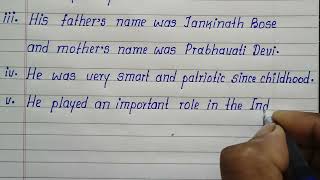 iii. His father's name was Jankinath Bose
and mother's name was Prabhavati Devi.
iv. He was very smart and patriotic since childhood.
v. He played an important role in the Ind